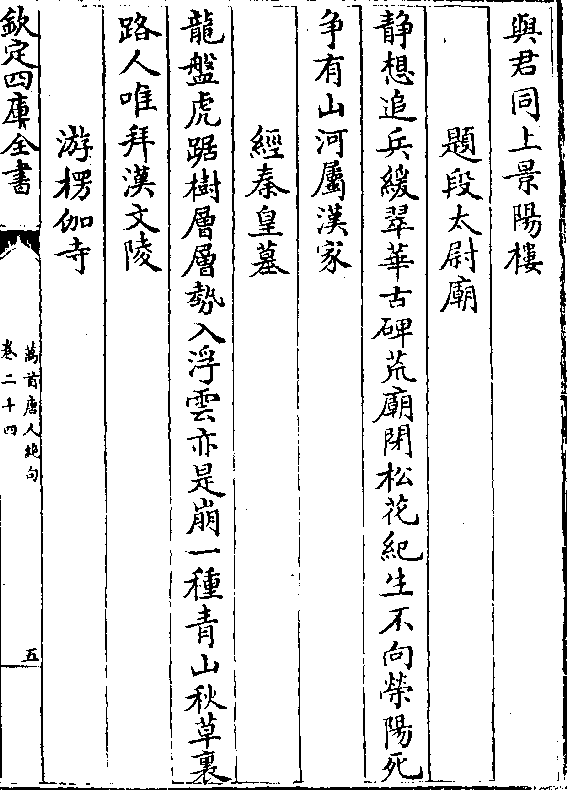 與君同上景陽樓
題段太尉廟
静想追兵緩翠華古碑荒廟閉松花紀生不向滎陽死
争有山河屬漢家
經秦皇墓
龍盤虎踞樹層層勢入浮雲亦是崩一種青山秋草裏
路人唯拜漢文陵
游楞伽寺
欽定四庫全書
萬首唐人絶句
卷二十四
五